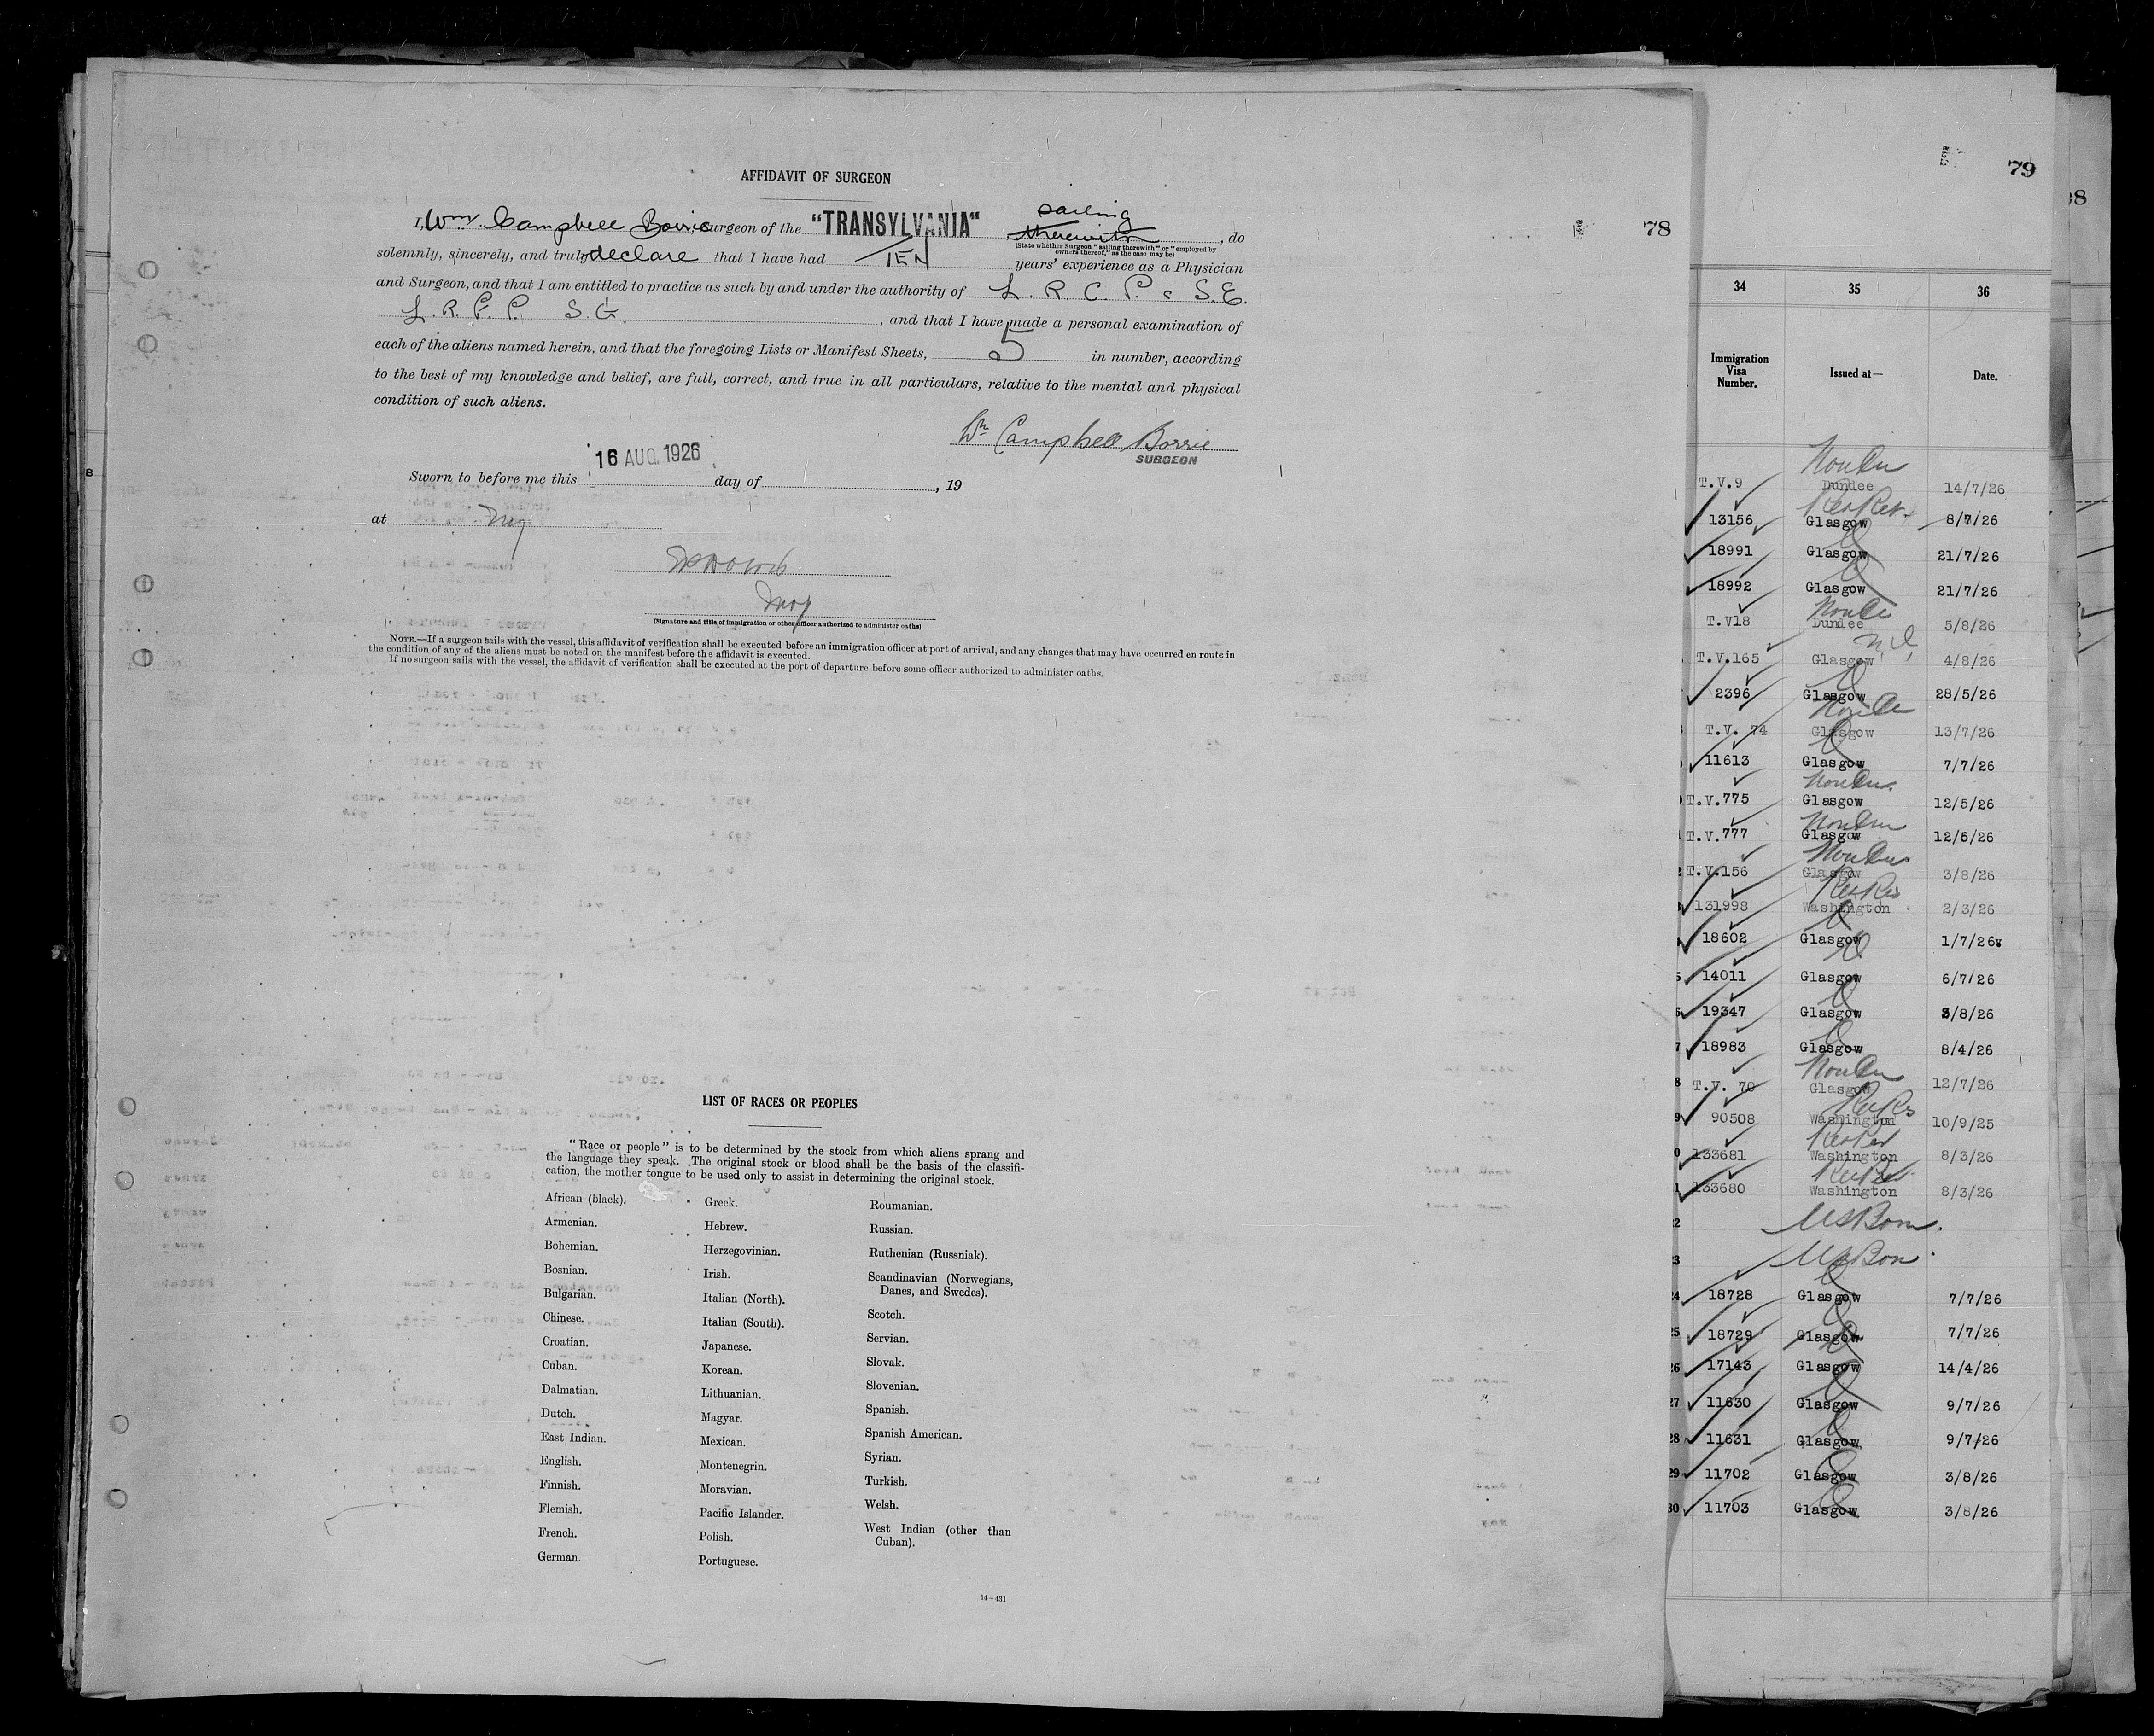 AFFIDAVIT OF SURGEON
sailing
I, Wm. Campbell Borrie Surgeon of the "TRANSYLVANIA" therewith, do
(State whether Surgeon "sailing therewith" or "employed by
owners thereof," as the case may be)
solemnly, sincerely, and truly declare that I have had TEN years' experience as a Physician
and Surgeon, and that I am entitled to practice as such by and under the authority of L. R. C. P. & S. E.
L. R. F. P. S. G. , and that I have made a personal examination of
each of the aliens named herein, and that the foregoing Lists or Manifest Sheets, 5 in number, according
to the best of my knowledge and belief, are full, correct, and true in all particulars, relative to the mental and physical
condition of such aliens.
Wm Campbell Borrie
SURGEON
16 AUG. 1926
Sworn to before me this day of , 19
at NY
(Signature and title of immigration or other officer authorized to administer oaths)
NOTE.—If a surgeon sails with the vessel, this affidavit of verification shall be executed before an immigration officer at port of arrival, and any changes that may have occurred en route in
the condition of any of the aliens must be noted on the manifest before the affidavit is executed.
If no surgeon sails with the vessel, the affidavit of verification shall be executed at the port of departure before some officer authorized to administer oaths.
78
LIST OF RACES OR PEOPLES
"Race or people" is to be determined by the stock from which aliens sprang and
the language they speak. The original stock or blood shall be the basis of the classifi-
cation, the mother tongue to be used only to assist in determining the original stock.
African (black).
Armenian.
Bohemian.
Bosnian.
Bulgarian.
Chinese.
Croatian.
Cuban.
Dalmatian.
Dutch.
East Indian.
English.
Finnish.
Flemish.
French.
German.
Greek.
Hebrew.
Herzegovinian.
Irish.
Italian (North).
Italian (South).
Japanese.
Korean.
Lithuanian.
Magyar.
Mexican.
Montenegrin.
Moravian.
Pacific Islander.
Polish.
Portuguese.
Roumanian.
Russian.
Ruthenian (Russniak).
Scandinavian (Norwegians,
Danes, and Swedes).
Scotch.
Servian.
Slovak.
Slovenian.
Spanish.
Spanish American.
Syrian.
Turkish.
Welsh.
West Indian (other than
Cuban).
14—431
79
34 35 36
Immigration
Visa
Number.
Issued at—
Date.
T.V.9 Dundee 14/7/26
13156 Glasgow 8/7/26
18991 Glasgow 21/7/26
18992 Glasgow 21/7/26
T.V18 Dundee 5/8/26
T.V.165 Glasgow 4/8/26
2396 Glasgow 28/5/26
T.V. 74 Glasgow 13/7/26
11613 Glasgow 7/7/26
T.V.775 Glasgow 12/5/26
T.V.777 Glasgow 12/5/26
T.V.156 Glasgow 3/8/26
131998 Washington 2/3/26
18602 Glasgow 1/7/26
5 14011 Glasgow 6/7/26
6 19347 Glasgow 3/8/26
7 18983 Glasgow 8/4/26
8 T.V. 70 Glasgow 12/7/26
9 90508 Washington 10/9/25
0 133681 Washington 8/3/26
1 133680 Washington 8/3/26
2 US Born.
3 US Born
24 18728 Glasgow 7/7/26
25 18729 Glasgow 7/7/26
26 17143 Glasgow 14/4/26
27 11630 Glasgow 9/7/26
28 11631 Glasgow 9/7/26
29 11702 Glasgow 3/8/26
30 11703 Glasgow 3/8/26